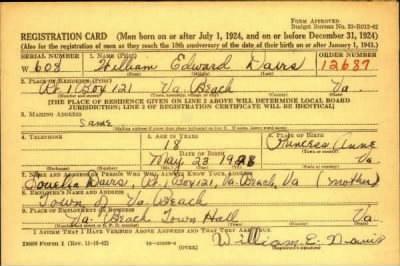 FORM APPROVED
Budget Bureau No. 33-R012-42
REGISTRATION CARD (Men born on or after July 1, 1924, and on or before December 31, 1924)
(Also for the registration of men as they reach the 18th anniversary of the date of their birth on or after January 1, 1943.)
SERIAL NUMBER 1. NAME (Print) ORDER NUMBER
W 608 William Edward Davis 12687
2. PLACE OF RESIDENCE (Print)
Rt 1 Box 121 Va. Beach Va.
[THE PLACE OF RESIDENCE GIVEN ON LINE 2 ABOVE WILL DETERMINE LOCAL BOARD
JURISDICTION; LINE 2 OF REGISTRATION CERTIFICATE WILL BE IDENTICAL]
3. MAILING ADDRESS
Same
[Mailing address if other than place indicated on line 2. If same, insert word same]
4. TELEPHONE 5. AGE IN YEARS 6. PLACE OF BIRTH
18 Princess Anne
DATE OF BIRTH
May 23 Va.
7. NAME AND ADDRESS OF PERSON WHO WILL ALWAYS KNOW YOUR ADDRESS
Davis, Rt. 1 Box 121, Va. Beach, Va (Mother)
8. EMPLOYER'S NAME AND ADDRESS
Town of Va Beach
9. PLACE OF EMPLOYMENT OR BUSINESS
Va. Beach Town Hall Va
I AFFIRM THAT I HAVE VERIFIED ABOVE ANSWERS AND THAT THEY ARE TRUE.
DSS Form 1 (Rev. 11-16-42) (OVER) William E. Davis